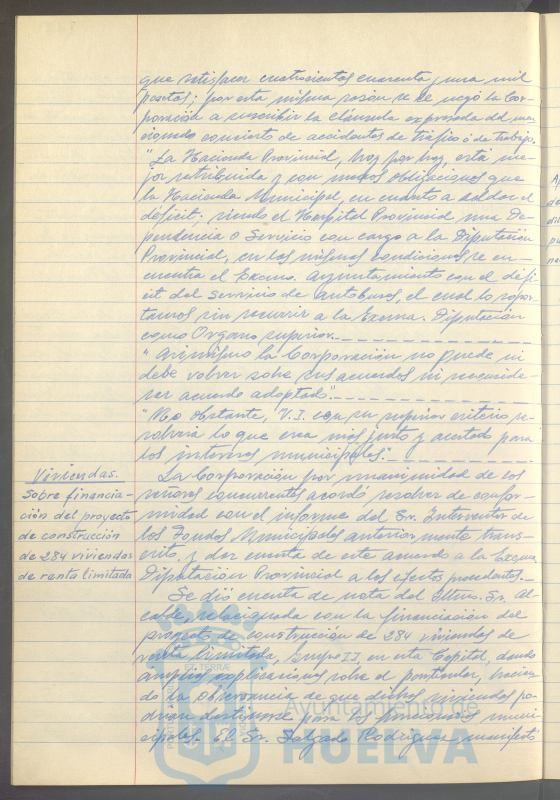 que satisfacer cuatrocientas cuarenta y una mil
pesetas; por esta misma razón se le negó la Cor-
poración a suscribir la cláusula expresada del men-
cionado concierto de accidentes de tráfico o de trabajo.
"La Hacienda Provincial, hoy por hoy, está me-
jor retribuida y con menos obligaciones que
la Hacienda Municipal, en cuanto a saldar el
déficit; siendo el Hospital Provincial una De-
pendencia o Servicio con cargo a la Diputación
Provincial, en las mismas condiciones se en-
cuentra el Excmo. Ayuntamiento con el défi-
cit del Servicio de autobuses, el cual lo sopor-
tamos sin recurrir a la Excma. Diputación
como Organo superior.
"Asimismo la Corporación no puede ni
debe volver sobre sus acuerdos ni reconside-
rar acuerdo adoptado".
"No obstante, V.I. con su superior criterio re-
solverá lo que crea más justo y acertado para
los intereses municipales".
La Corporación por unanimidad de los
señores concurrentes acordó resolver de confor-
midad con el informe del Sr. Interventor de
los Fondos Municipales anteriormente trans-
crito, y dar cuenta de este acuerdo a la Excma.
Diputación Provincial a los efectos procedentes.
Viviendas.
Sobre financia-
ción del proyecto
de construcción
de 284 viviendas
de renta limitada
Se dió cuenta de nota del Iltmo. Sr. Al-
calde, relacionada con la financiación del
proyecto de construcción de 284 viviendas de
renta limitada, grupo II, en esta Capital, dando
amplias explicaciones sobre el particular, hacien-
do la observancia de que dichas viviendas po-
drían destinarse para los funcionarios muni-
cipales. El Sr. Salgado Rodríguez manifestó
Ayuntamiento de
HUELVA